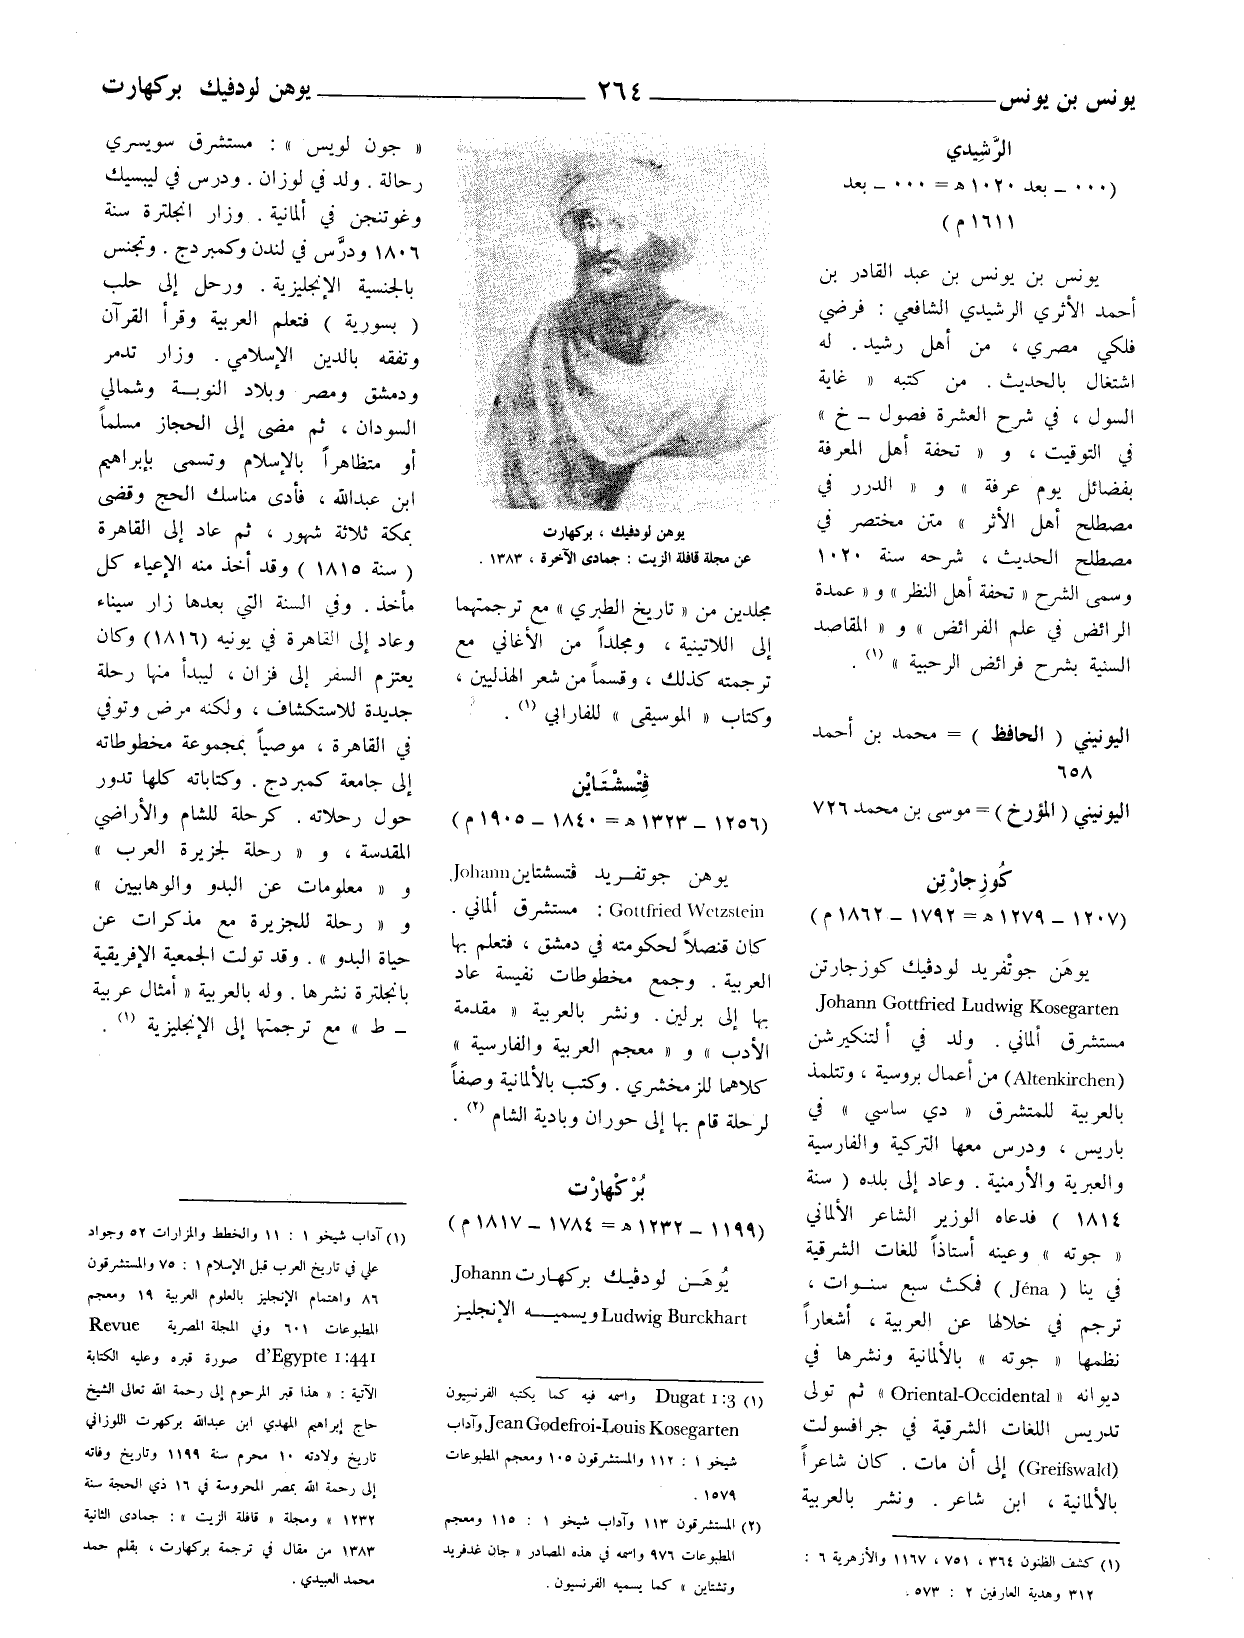 يونس بن يونس ٢٦٤ يوهن لودفيك بركهارت
الرَّشِيدي
(٠٠٠ ــ بعد ١٠٢٠ ه = ٠٠٠ ــ بعد
١٦١١ م)
يونس بن يونس بن عبد القادر بن
أحمد الأثري الرشيدي الشافعي : فرضي
فلكي مصري ، من أهل رشيد . له
اشتغال بالحديث . من كتبه « غاية
السول ، في شرح العشرة فصول ــ خ »
في التوقيت ، و « تحفة أهل المعرفة
بفضائل يوم عرفة » و « الدرر في
مصطلح أهل الأثر » متن مختصر في
مصطلح الحديث ، شرحه سنة ١٠٢٠
وسمى الشرح « تحفة أهل النظر » و « عمدة
الرائض في علم الفرائض » و « المقاصد
السنية بشرح فرائض الرحبية » (١) .
اليونيني ( الحافظ ) = محمد بن أحمد
٦٥٨
اليونيني ( المؤرخ ) = موسى بن محمد ٧٢٦
كُوزجارْتِن
(١٢٠٧ ــ ١٢٧٩ ه = ١٧٩٢ ــ ١٨٦٢ م)
يوهَن جوتْفريد لودڤيك كوزجارتن
Johann Gottfried Ludwig Kosegarten
مستشرق ألماني . ولد في ألتنكيرشن
(Altenkirchen) من أعمال بروسية ، وتتلمذ
بالعربية للمتشرق « دي ساسي » في
باريس ، ودرس معها التركية والفارسية
والعبرية والأرمنية . وعاد إلى بلده ( سنة
١٨١٤ ) فدعاه الوزير الشاعر الألماني
« جوته » وعينه أستاذاً للغات الشرقية
في ينا ( Jéna ) فمكث سبع سنوات ،
ترجم في خلالها عن العربية ، أشعاراً
نظمها « جوته » بالألمانية ونشرها في
ديوانه « Oriental-Occidental » ثم تولى
تدريس اللغات الشرقية في جرافسولت
(Greifswald) إلى أن مات . كان شاعراً
بالألمانية ، ابن شاعر . ونشر بالعربية
(١) كشف الظنون ٣٦٤ ، ٧٥١ ، ١١٦٧ والأزهرية ٦ :
٣١٢ وهدية العارفين ٢ : ٥٧٣ .
يوهن لودفيك ، بركهارت
عن مجلة قافلة الزيت : جمادى الآخرة ، ١٣٨٣ .
مجلدين من « تاريخ الطبري » مع ترجمتهما
إلى اللاتينية ، ومجلداً من الأغاني مع
ترجمته كذلك ، وقسماً من شعر الهذليين ،
وكتاب « الموسيقى » للفارابي (١) .
ڤِتْسشْتَايْن
(١٢٥٦ ــ ١٣٢٣ ه = ١٨٤٠ ــ ١٩٠٥ م)
يوهن جوتفريد ڤتسشتاين Johann
Gottfried Wetzstein : مستشرق ألماني .
كان قنصلاً لحكومته في دمشق ، فتعلم بها
العربية . وجمع مخطوطات نفيسة عاد
بها إلى برلين . ونشر بالعربية « مقدمة
الأدب » و « معجم العربية والفارسية »
كلاهما للزمخشري . وكتب بالألمانية وصفاً
لرحلة قام بها إلى حوران وبادية الشام (٢) .
بُرْكْهارْت
(١١٩٩ ــ ١٢٣٢ ه = ١٧٨٤ ــ ١٨١٧ م)
يُوهَن لودڤيك بركهارت Johann
Ludwig Burckhart ويسميه الإنجليز
(١) Dugat 1:3 واسمه فيه كما يكتبه الفرنسيون
Jean Godefroi-Louis Kosegarten وآداب
شيخو ١ : ١١٢ والمستشرقون ١٠٥ ومعجم المطبوعات
١٥٧٩ .
(٢) المستشرقون ١١٣ وآداب شيخو ١ : ١١٥ ومعجم
المطبوعات ٩٧٦ واسمه في هذه المصادر « جان غدفريد
وتشتاين » كما يسميه الفرنسيون .
« جون لويس » : مستشرق سويسري
رحالة . ولد في لوزان . ودرس في ليبسيك
وغوتنجن في ألمانية . وزار انجلترة سنة
١٨٠٦ ودرَّس في لندن وكمبردج . وتجنس
بالجنسية الإنجليزية . ورحل إلى حلب
( بسورية ) فتعلم العربية وقرأ القرآن
وتفقه بالدين الإسلامي . وزار تدمر
ودمشق ومصر وبلاد النوبة وشمالي
السودان ، ثم مضى إلى الحجاز مسلماً
أو متظاهراً بالإسلام وتسمى بإبراهيم
ابن عبدالله ، فأدى مناسك الحج وقضى
بمكة ثلاثة شهور ، ثم عاد إلى القاهرة
( سنة ١٨١٥ ) وقد أخذ منه الإعياء كل
مأخذ . وفي السنة التي بعدها زار سيناء
وعاد إلى القاهرة في يونيه (١٨١٦) وكان
يعتزم السفر إلى فزان ، ليبدأ منها رحلة
جديدة للاستكشاف ، ولكنه مرض وتوفي
في القاهرة ، موصياً بمجموعة مخطوطاته
إلى جامعة كمبردج . وكتاباته كلها تدور
حول رحلاته . كرحلة للشام والأراضي
المقدسة ، و « رحلة لجزيرة العرب »
و « معلومات عن البدو والوهابيين »
و « رحلة للجزيرة مع مذكرات عن
حياة البدو » . وقد تولت الجمعية الإفريقية
بانجلترة نشرها . وله بالعربية « أمثال عربية
ــ ط » مع ترجمتها إلى الإنجليزية (١) .
(١) آداب شيخو ١ : ١١ والخطط والمزارات ٥٢ وجواد
علي في تاريخ العرب قبل الإسلام ١ : ٧٥ والمستشرقون
٨٦ واهتمام الإنجليز بالعلوم العربية ١٩ ومعجم
المطبوعات ٦٠١ وفي المجلة المصرية Revue
d'Egypte 1:441 صورة قبره وعليه الكتابة
الآتية : « هذا قبر المرحوم إلى رحمة الله تعالى الشيخ
حاج إبراهيم المهدي ابن عبدالله بركهرت اللوزاني
تاريخ ولادته ١٠ محرم سنة ١١٩٩ وتاريخ وفاته
إلى رحمة الله بمصر المحروسة في ١٦ ذي الحجة سنة
١٢٣٢ » ومجلة « قافلة الزيت » : جمادى الثانية
١٣٨٣ من مقال في ترجمة بركهارت ، بقلم حمد
محمد العبيدي .